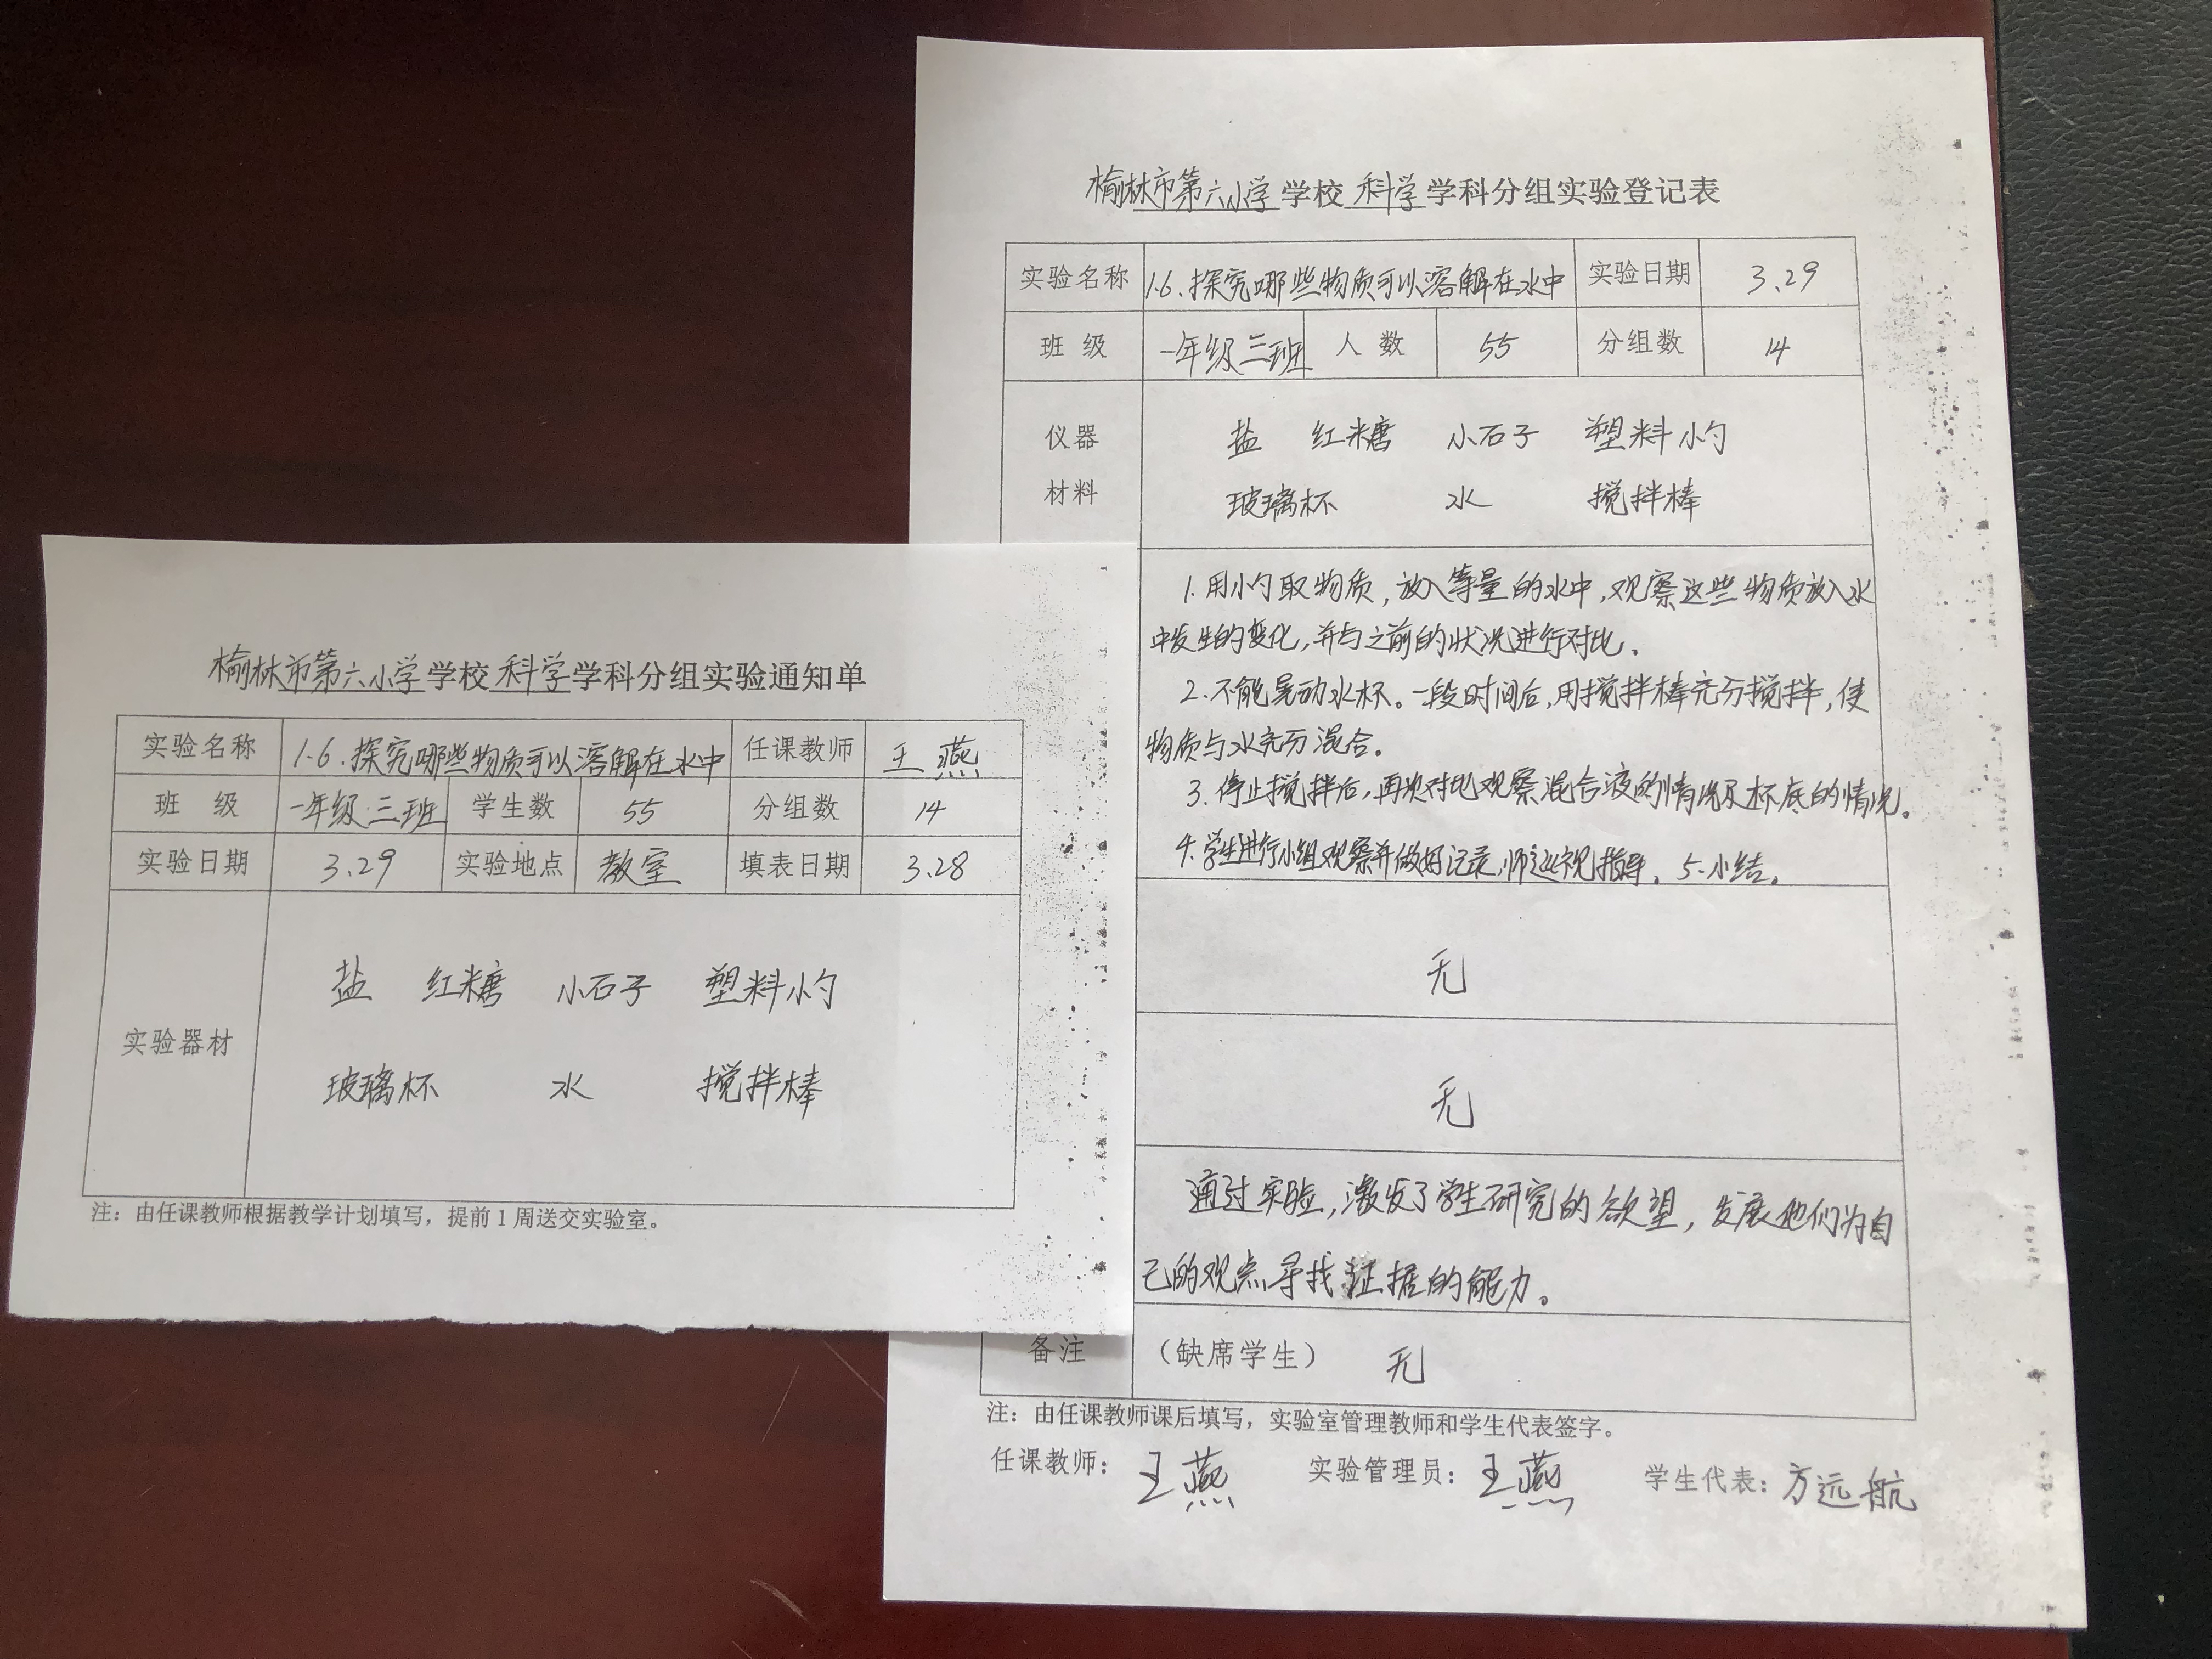 榆林市第六小学学校 科学 学科分组实验通知单
实验名称 1.6.探究哪些物质可以溶解在水中 任课教师 王燕
班 级 一年级三班 学生数 55 分组数 14
实验日期 3.29 实验地点 教室 填表日期 3.28
实验器材
盐 红糖 小石子 塑料小勺
玻璃杯 水 搅拌棒
注：由任课教师根据教学计划填写，提前1周送交实验室。
榆林市第六小学学校 科学 学科分组实验登记表
实验名称 1.6.探究哪些物质可以溶解在水中 实验日期 3.29
班 级 一年级三班 人 数 55 分组数 14
仪器
材料
盐 红糖 小石子 塑料小勺
玻璃杯 水 搅拌棒
1.用小勺取物质，放入等量的水中，观察这些物质放入水
中发生的变化，并与之前的状况进行对比。
2.不能晃动水杯。一段时间后，用搅拌棒充分搅拌，使
物质与水充分混合。
3.停止搅拌后，再次对比观察混合液的情况及杯底的情况。
4.学生进行小组观察并做好记录，师巡视指导。5.小结。
无
无
通过实验，激发了学生研究的欲望，发展他们为自
己的观点寻找证据的能力。
备注 （缺席学生） 无
注：由任课教师课后填写，实验室管理教师和学生代表签字。
任课教师：王燕 实验管理员：王燕 学生代表：方远航